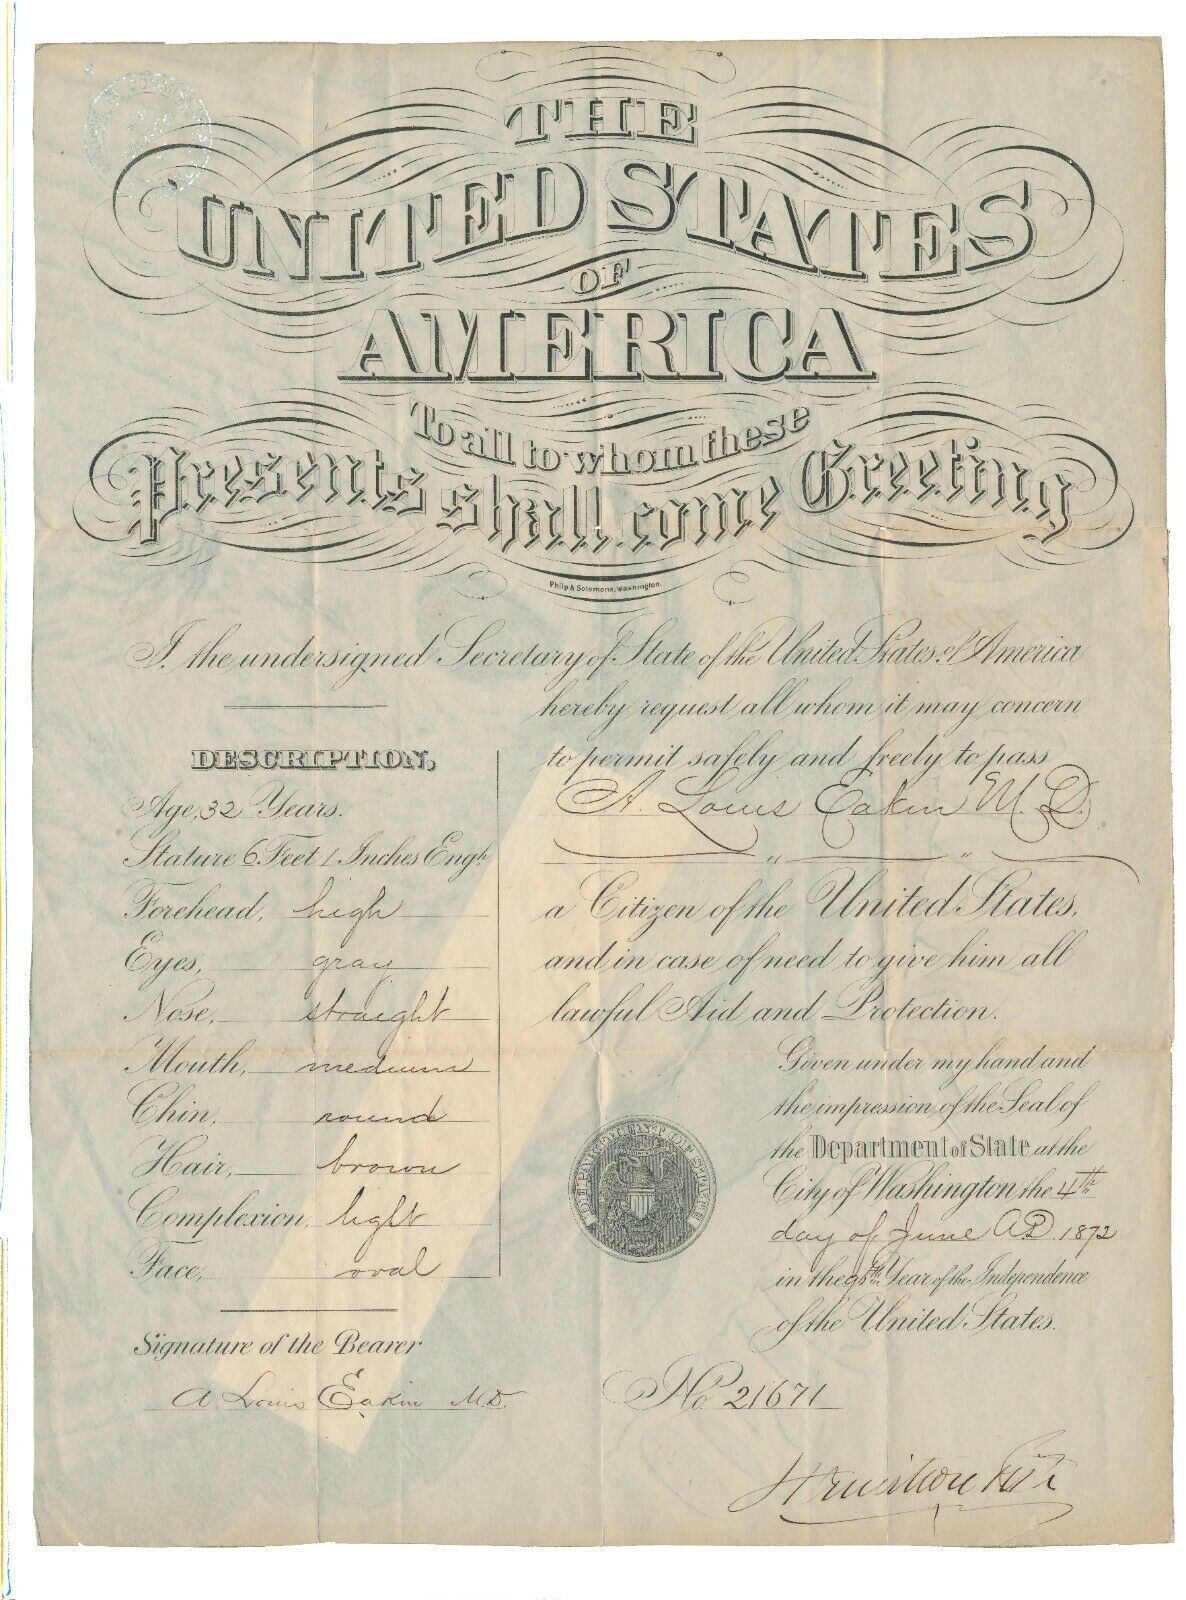 THE
UNITED STATES
OF
AMERICA
To all to whom these
Presents shall come Greeting
Philp & Solomons, Washington.
I, the undersigned Secretary of State of the United States of America
hereby request all whom it may concern
to permit safely and freely to pass
A. Louis Eakin M.D.
" "
a Citizen of the United States,
and in case of need to give him all
lawful Aid and Protection.
Given under my hand and
the impression of the Seal of
the Department of State at the
City of Washington, the 4th
day of June A.D. 1872
in the 96th Year of the Independence
of the United States.
DESCRIPTION,
Age, 32 Years.
Stature 6 Feet 1 Inches Engh
Forehead, high
Eyes, gray
Nose, straight
Mouth, medium
Chin, round
Hair, brown
Complexion, light
Face, oval
Signature of the Bearer
A Louis Eakin M.D.
DEPARTMENT OF STATE
No. 21671
Hamilton Fish